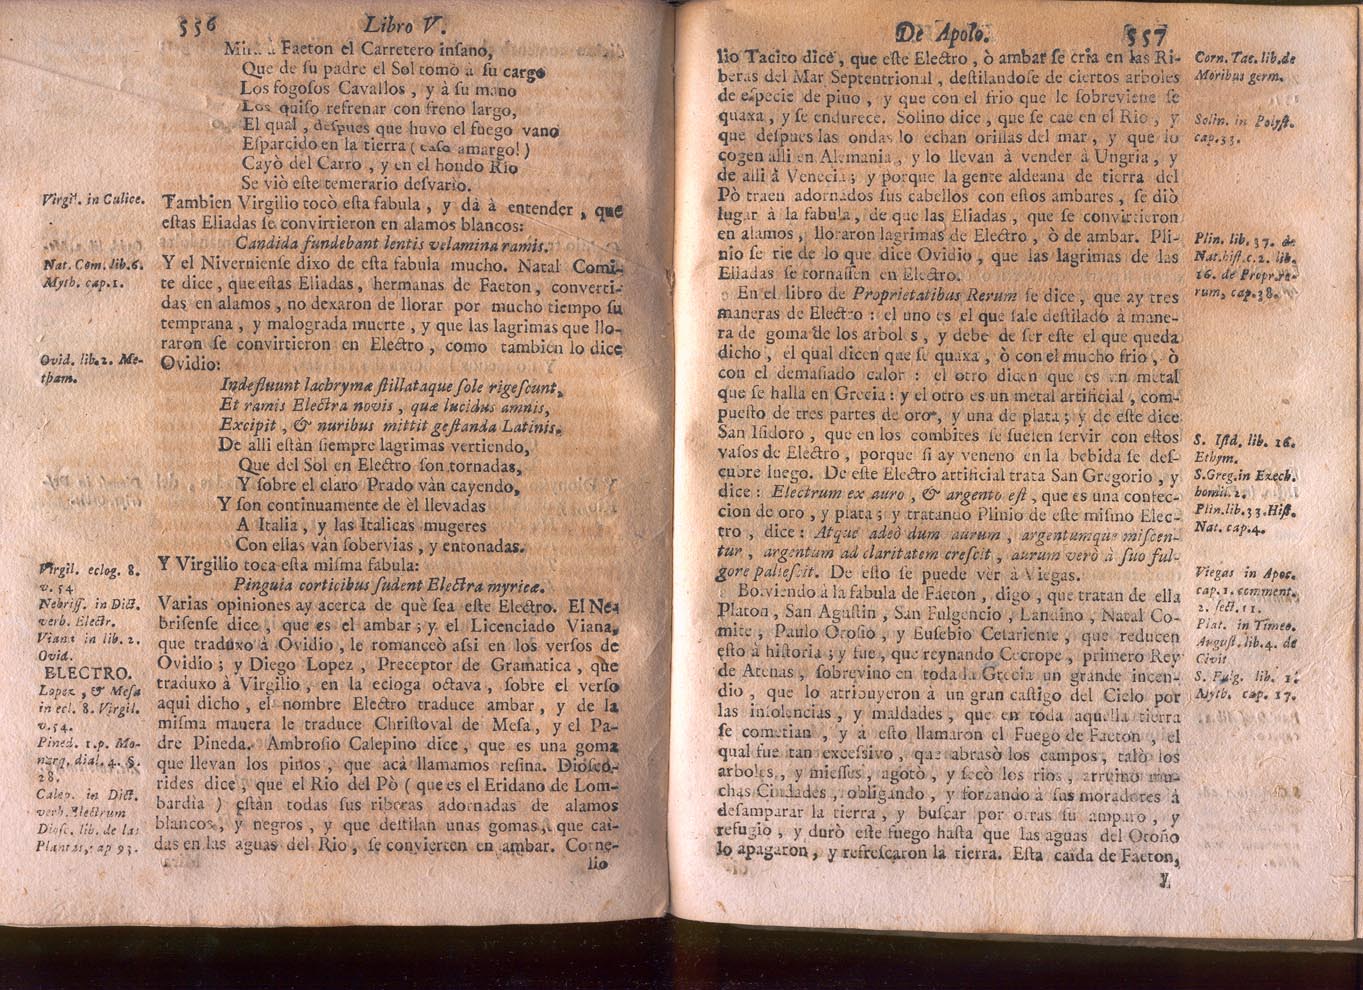 556
Libro V.
Mirá à Faeton el Carretero insano,
Que de su padre el Sol tomò à su cargo
Los fogosos Cavallos, y à su mano
Los quiso refrenar con freno largo,
El qual, despues que huvo el fuego vano
Esparcido en la tierra (caso amargo!)
Cayò del Carro, y en el hondo Rio
Se viò este temerario desvario.
Virgil. in Culice.
Tambien Virgilio tocò esta fabula, y dà à entender, que
estas Eliadas se convirtieron en alamos blancos:
Candida fundebant lentis velamina ramis.
Nat. Com. lib. 6.
Myth. cap. 1.
Y el Niverniense dixo de esta fabula mucho. Natal Comi-
te dice, que estas Eliadas, hermanas de Faeton, converti-
das en alamos, no dexaron de llorar por mucho tiempo su
temprana, y malograda muerte, y que las lagrimas que llo-
raron se convirtieron en Electro, como tambien lo dice
Ovid. lib. 2. Me-
tham.
Ovidio:
Indefluunt lachrymæ stillataque sole rigescunt,
Et ramis Electra novis, quæ lucidus amnis,
Excipit, & nuribus mittit gestanda Latinis.
De alli estàn siempre lagrimas vertiendo,
Que del Sol en Electro son tornadas,
Y sobre el claro Prado vàn cayendo,
Y son continuamente de èl llevadas
A Italia, y las Italicas mugeres
Con ellas vàn sobervias, y entonadas.
Virgil. eclog. 8.
v. 54
Y Virgilio toca esta misma fabula:
Pinguia corticibus sudent Electra myricæ.
Nebriss. in Dict.
verb. Electr.
Viana in lib. 2.
Ovid.
ELECTRO.
Lopez, & Mesa
in ecl. 8. Virgil.
v. 54.
Pined. 1. p. Mo-
narq. dial. 4. §.
28.
Calep. in Dict.
verb. Electrum
Diosc. lib. de las
Plantas, cap 93.
Varias opiniones ay acerca de què sea este Electro. El Ne-
brisense dice, que es el ambar; y el Licenciado Viana,
que traduxo à Ovidio, le romanceò assi en los versos de
Ovidio; y Diego Lopez, Preceptor de Gramatica, que
traduxo à Virgilio, en la ecloga octava, sobre el verso
aqui dicho, el nombre Electro traduce ambar, y de la
misma manera le traduce Christoval de Mesa, y el Pa-
dre Pineda. Ambrosio Calepino dice, que es una goma
que llevan los pinos, que acà llamamos resina. Dioscó-
rides dice, que el Rio del Pò (que es el Eridano de Lom-
bardia) estàn todas sus riberas adornadas de alamos
blancos, y negros, y que destilan unas gomas, que cai-
das en las aguas del Rio, se convierten en ambar. Corne-
lio
De Apolo.
557
lio Tacito dice, que este Electro, ò ambar se cria en las Ri-
beras del Mar Septentrional, destilandose de ciertos arboles
de especie de pino, y que con el frio que le sobreviene se
quaxa, y se endurece. Solino dice, que se cae en el Rio, y
que despues las ondas lo echan orillas del mar, y que lo
cogen alli en Alemania, y lo llevan à vender à Ungria, y
de alli à Venecia; y porque la gente aldeana de tierra del
Pò traen adornados sus cabellos con estos ambares, se diò
lugar à la fabula, de que las Eliadas, que se convirtieron
en alamos, lloraron lagrimas de Electro, ò de ambar. Pli-
nio se rie de lo que dice Ovidio, que las lagrimas de las
Eliadas se tornassen en Electro.
Corn. Tac. lib. de
Moribus germ.
Solin. in Polyst.
cap. 33.
Plin. lib. 37. de
Nat. hist. c. 2. lib.
16. de Propr. re-
rum, cap. 38.
En el libro de Proprietatibus Rerum se dice, que ay tres
maneras de Electro: el uno es el que sale destilado à mane-
ra de goma de los arboles, y debe de ser este el que queda
dicho, el qual dicen que se quaxa, ò con el mucho frio, ò
con el demasiado calor: el otro dicen que es un metal
que se halla en Grecia: y el otro es un metal artificial, com-
puesto de tres partes de oro, y una de plata; y de este dice
San Isidoro, que en los combites se suelen servir con estos
vasos de Electro, porque si ay veneno en la bebida se des-
cubre luego. De este Electro artificial trata San Gregorio, y
dice: Electrum ex auro, & argento est, que es una confec-
cion de oro, y plata; y tratando Plinio de este mismo Elec-
tro, dice: Atque adeò dum aurum, argentumque miscen-
tur, argentum ad claritatem crescit, aurum verò à suo ful-
gore pallescit. De esto se puede vèr à Viegas.
S. Isid. lib. 16.
Ethym.
S. Greg. in Exech.
homil. 2.
Plin. lib. 33. Hist.
Nat. cap. 4.
Viegas in Apoc.
cap. 1. comment.
2. sect. 11.
Plat. in Timeo.
August. lib. 4. de
Civit
S. Fulg. lib. 1.
Myth. cap. 17.
Bolviendo à la fabula de Faeton, digo, que tratan de ella
Platon, San Agustin, San Fulgencio, Landino, Natal Co-
mite, Paulo Orosio, y Eusebio Cesariente, que reducen
esto à historia; y fue, que reynando Cecrope, primero Rey
de Atenas, sobrevino en toda la Grecia un grande incen-
dio, que lo atribuyeron à un gran castigo del Cielo por
las insolencias, y maldades, que en toda aquella tierra
se cometian, y à esto llamaron el Fuego de Faeton, el
qual fue tan excessivo, que abrasò los campos, talò los
arboles, y miesses, agotò, y secò los rios, arruinò mu-
chas Ciudades, obligando, y forzando à sus moradores à
desamparar la tierra, y buscar por otras su amparo, y
refugio, y durò este fuego hasta que las aguas del Otoño
lo apagaron, y refrescaron la tierra. Esta caìda de Faeton,
y